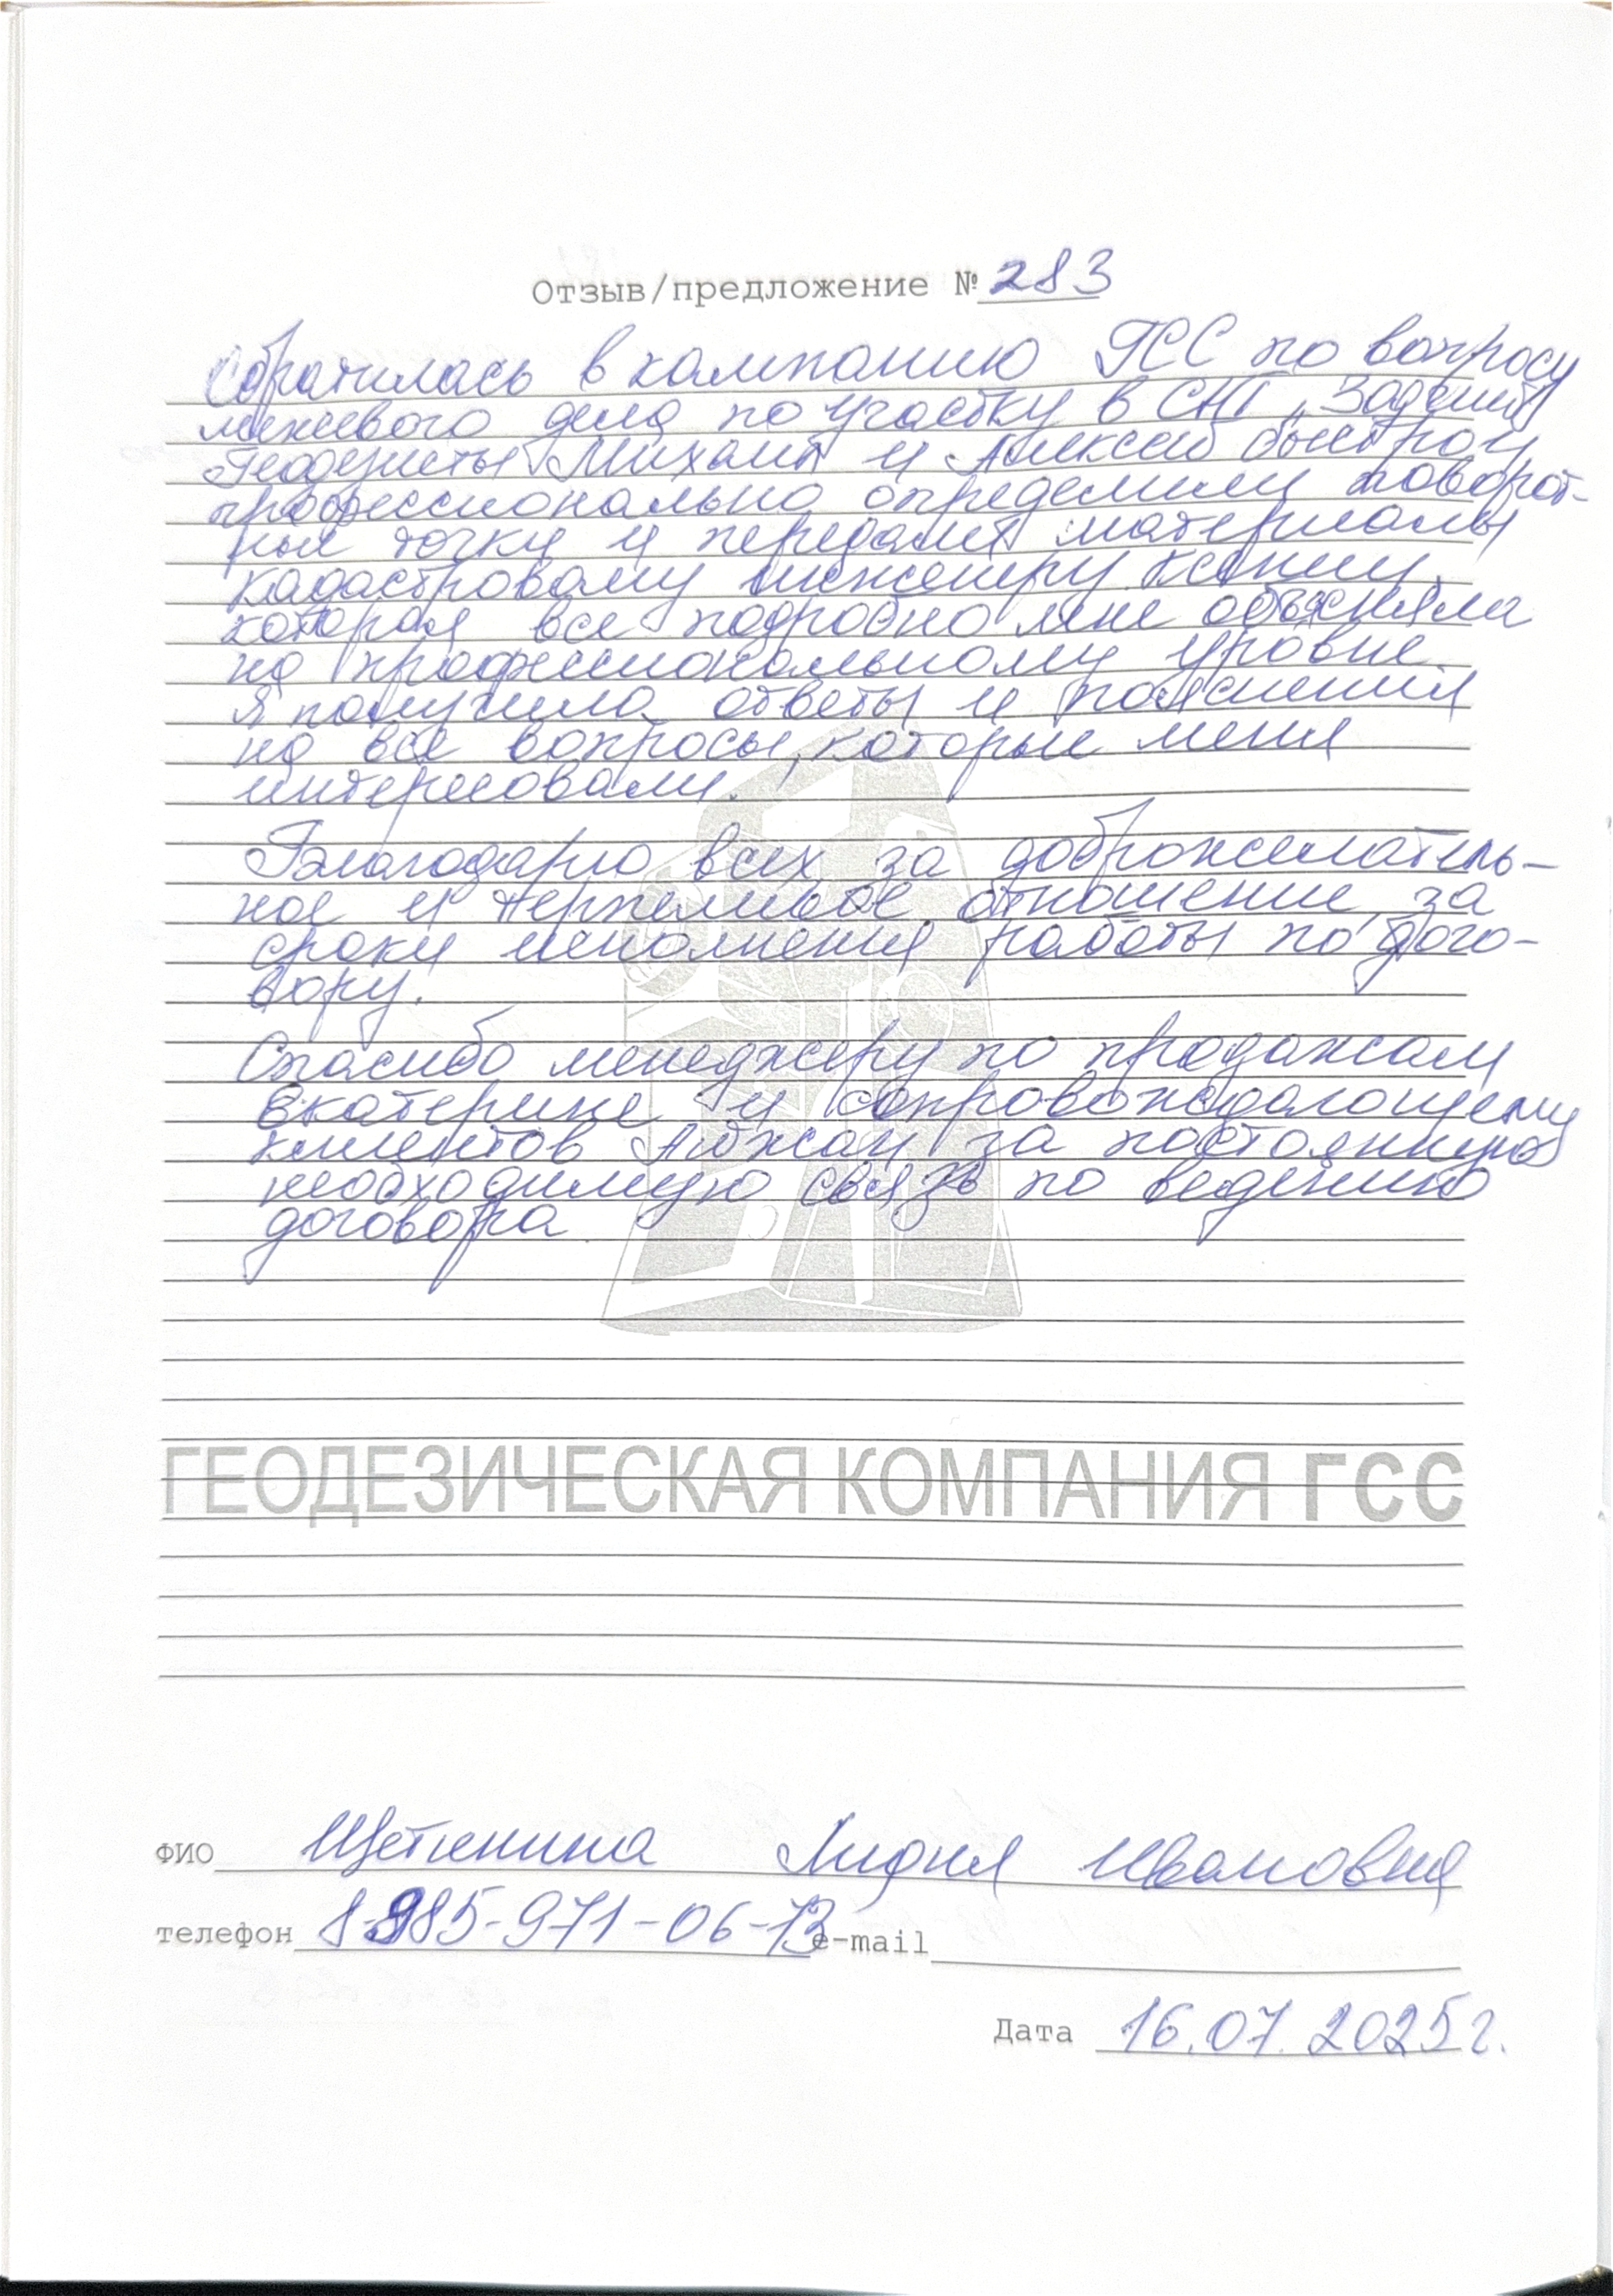 Отзыв/предложение № 283
Обратилась в компанию ГСС по вопросу
межевого дела по участку в СНТ
Геодезисты Михаил и Алексей быстро и
профессионально определили поворот-
ные точки и передали материалы
кадастровому инженеру Ксении,
которая все подробно мне объясняла
на профессиональному уровне.
Я получила ответы и пояснения
на все вопросы, которые меня
интересовали.
Благодарю всех за доброжелатель-
ное и терпеливое отношение, за
сроки исполнения работы по дого-
вору.
Спасибо менеджеру по продажам
Екатерине и сопровождающему
клиентов за постоянную
необходимую связь по ведению
договора.
ГЕОДЕЗИЧЕСКАЯ КОМПАНИЯ ГСС
ФИО Щетинина Лидия Ивановна
телефон 8-985-971-06-73 e-mail
Дата 16.07.2025г.